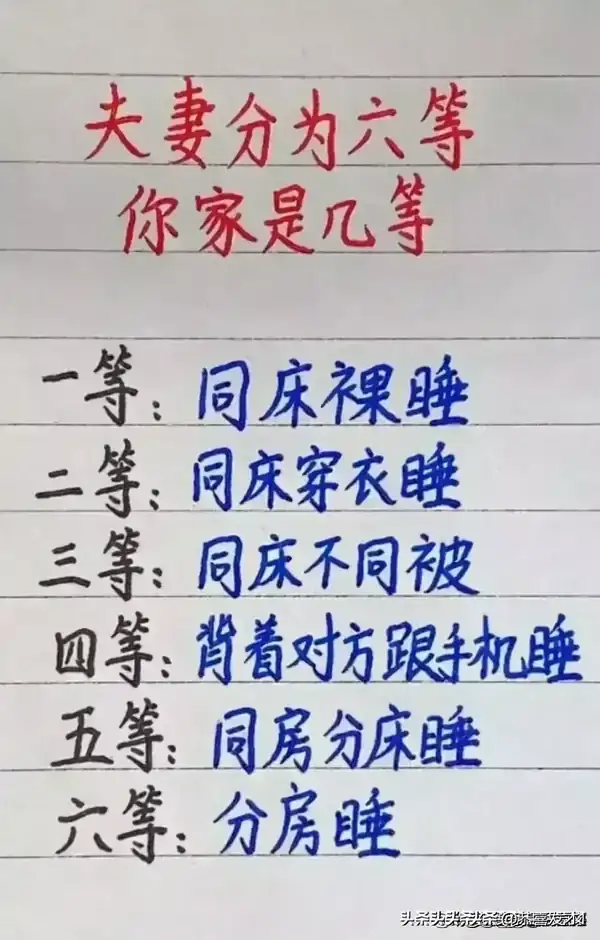 夫妻分为六等
你家是几等
一等：同床裸睡
二等：同床穿衣睡
三等：同床不同被
四等：背着对方跟手机睡
五等：同房分床睡
六等：分房睡